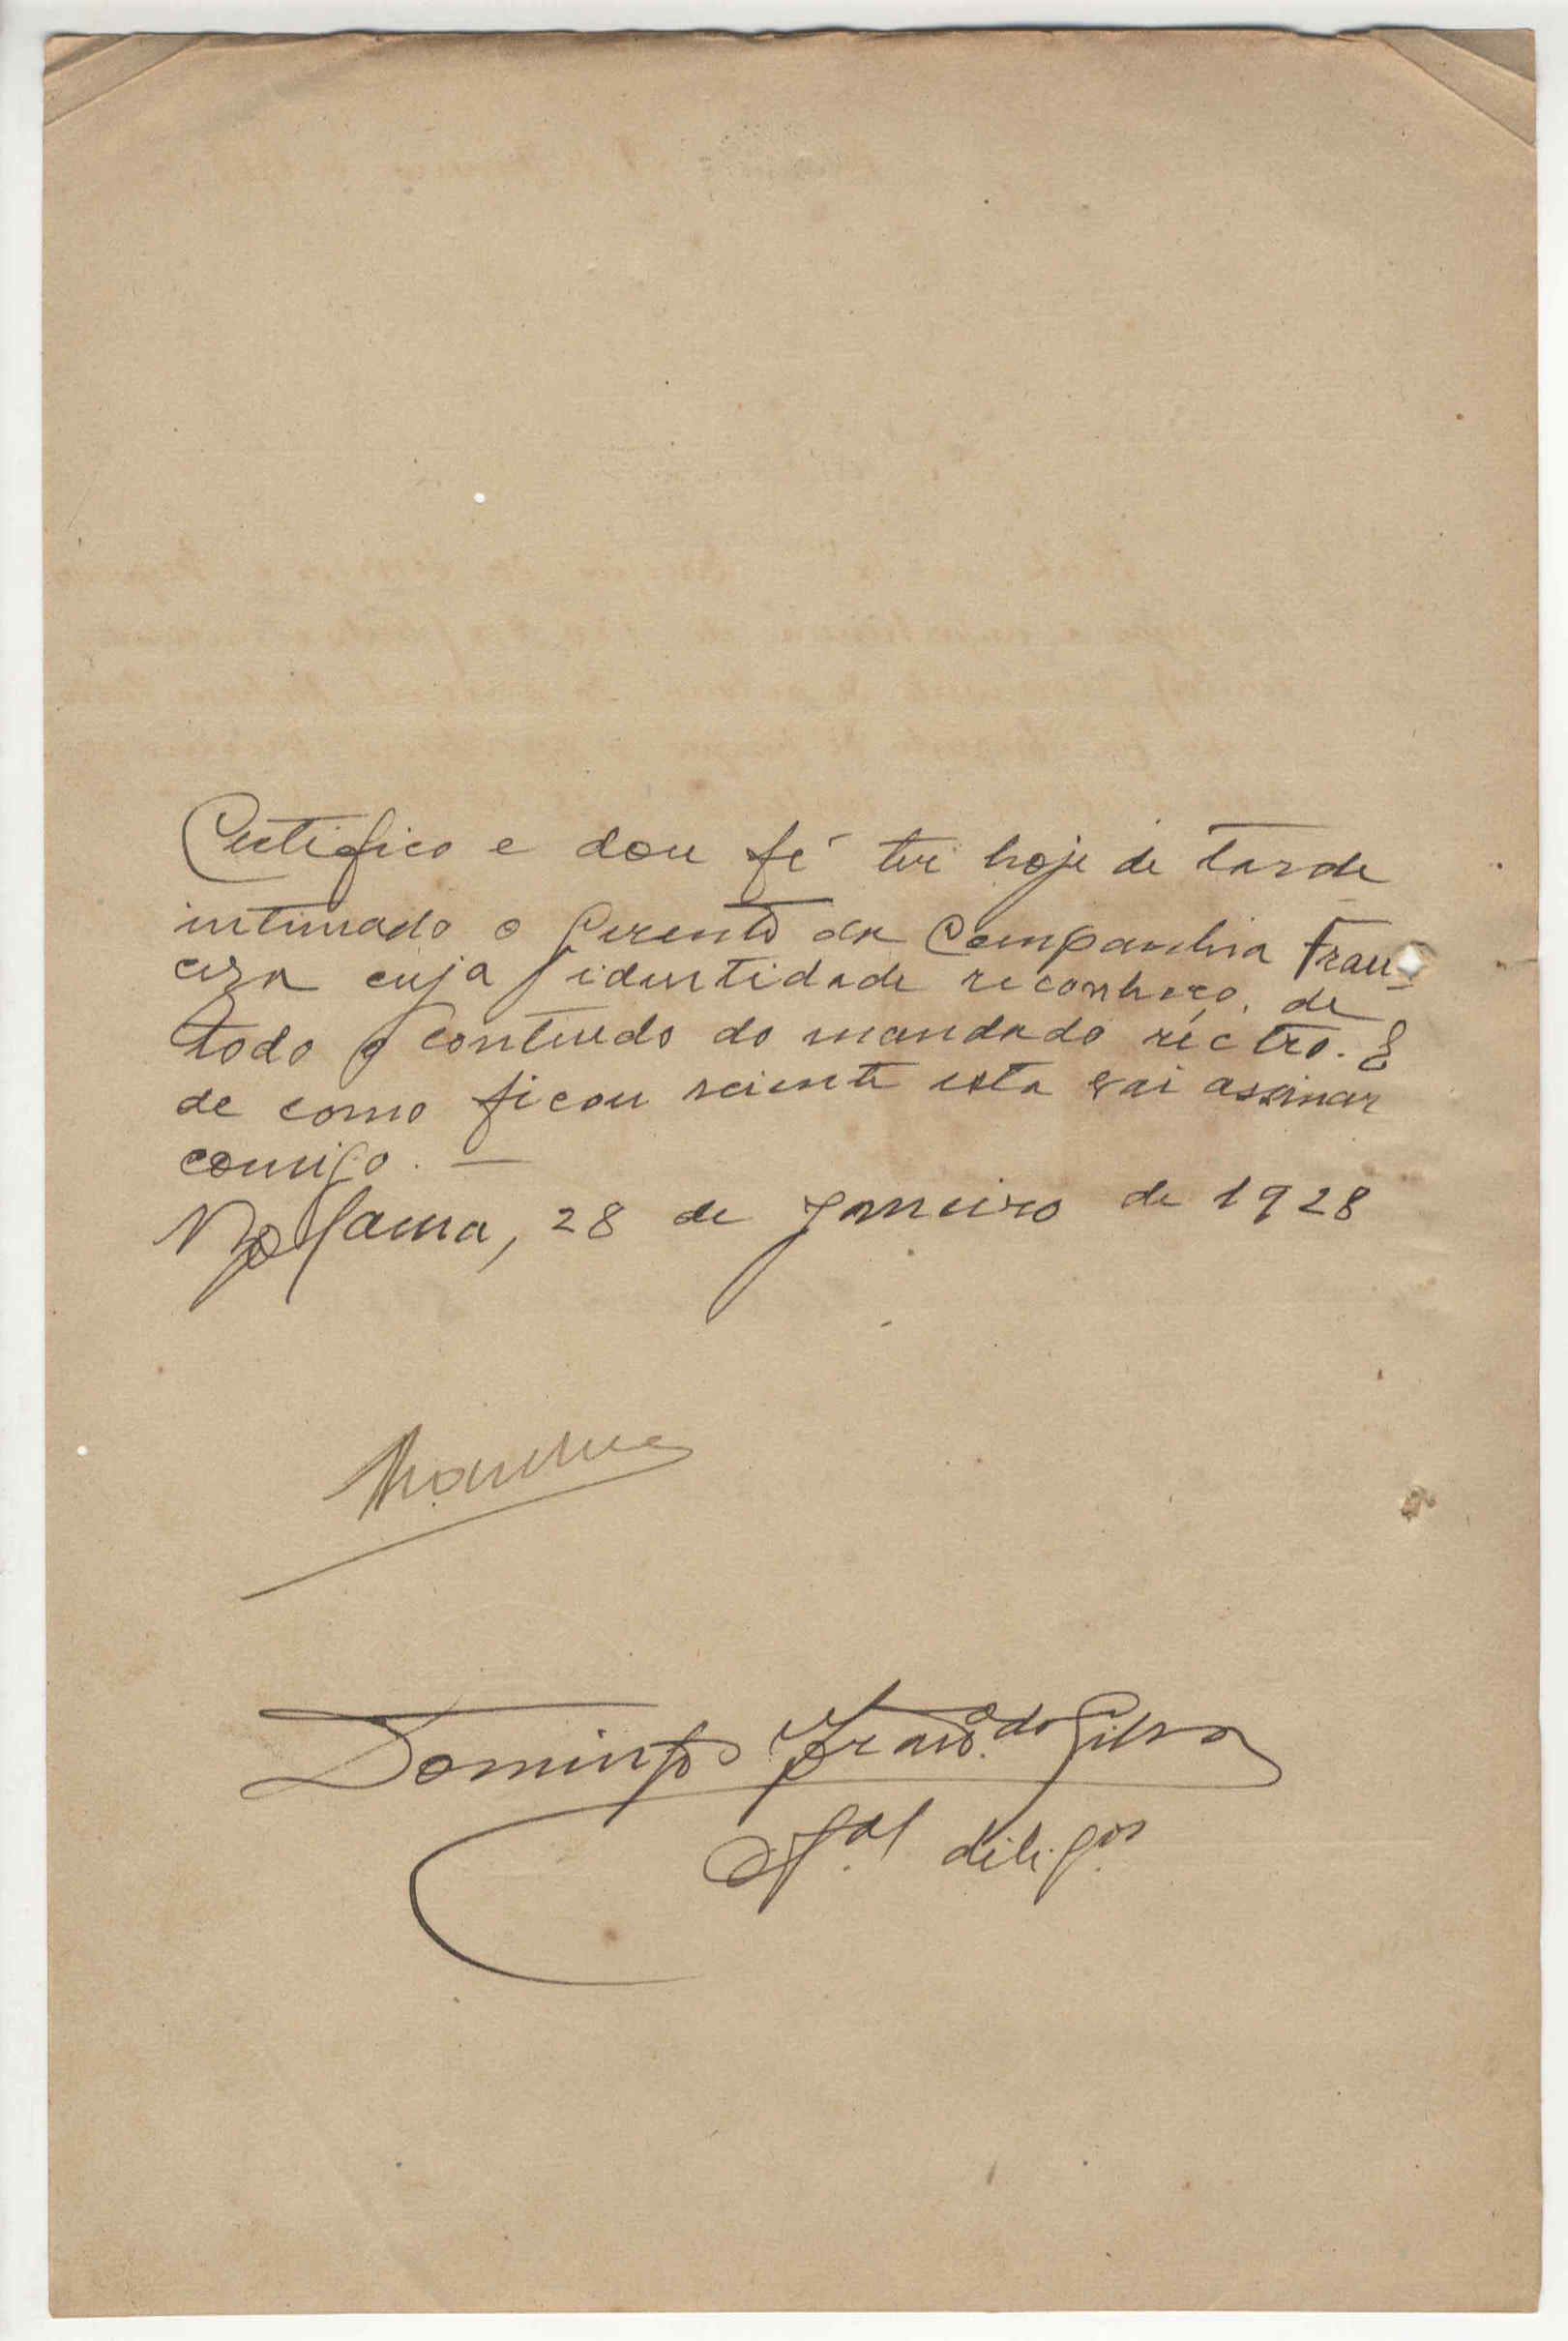 Certifico e dou fé ter hoje de tarde
intimado o Gerente da Companhia Fran-
ceza cuja identidade reconheço, de
todo o contiudo do mandado réctro. E
de como ficou sciente esta vai assinar
comigo. —
28 de Janeiro de 1928
Domingos Franco. da Silva
Of.al dilig.as